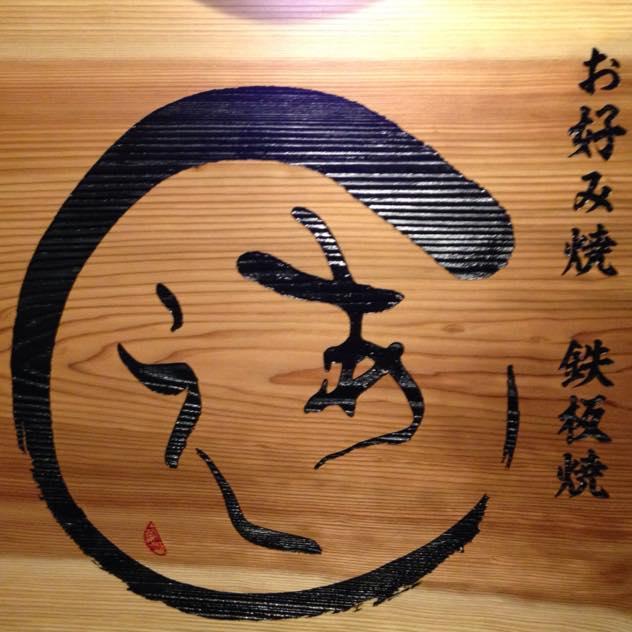 お好み焼 鉄板焼
あらし